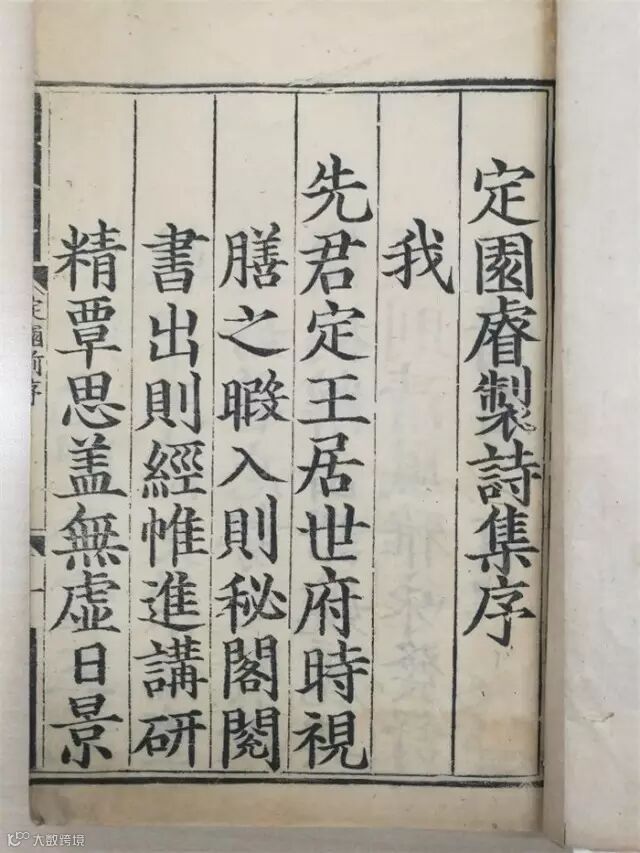 定園睿製詩集序
我
先君定王居世府時視
膳之暇入則秘閣閱
書出則經帷進講研
精覃思盖無虛日景
定園前序
一
大数跨境